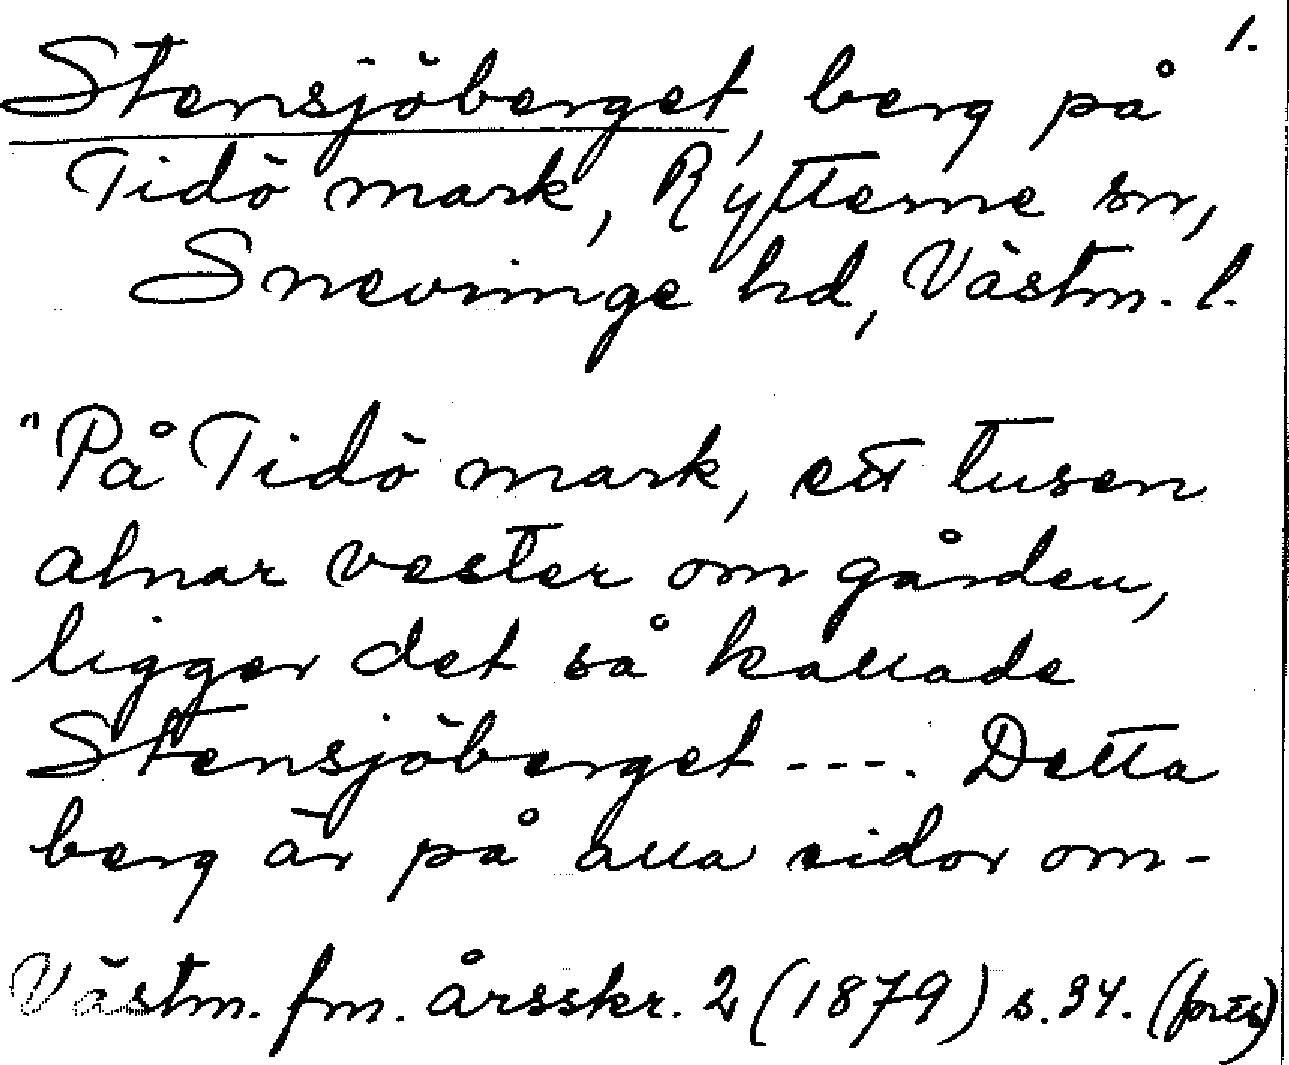 1.
Stensjöberget, berg på
Tidö mark, Rytterne sn,
Snevringe hd, Västm. l.
"På Tidö mark, ett tusen
alnar vester om gården,
ligger det så kallade
Stensjöberget ---. Detta
berg är på alla sidor om-
Västm. fm. årsskr. 2 (1879) s. 34. (forts)